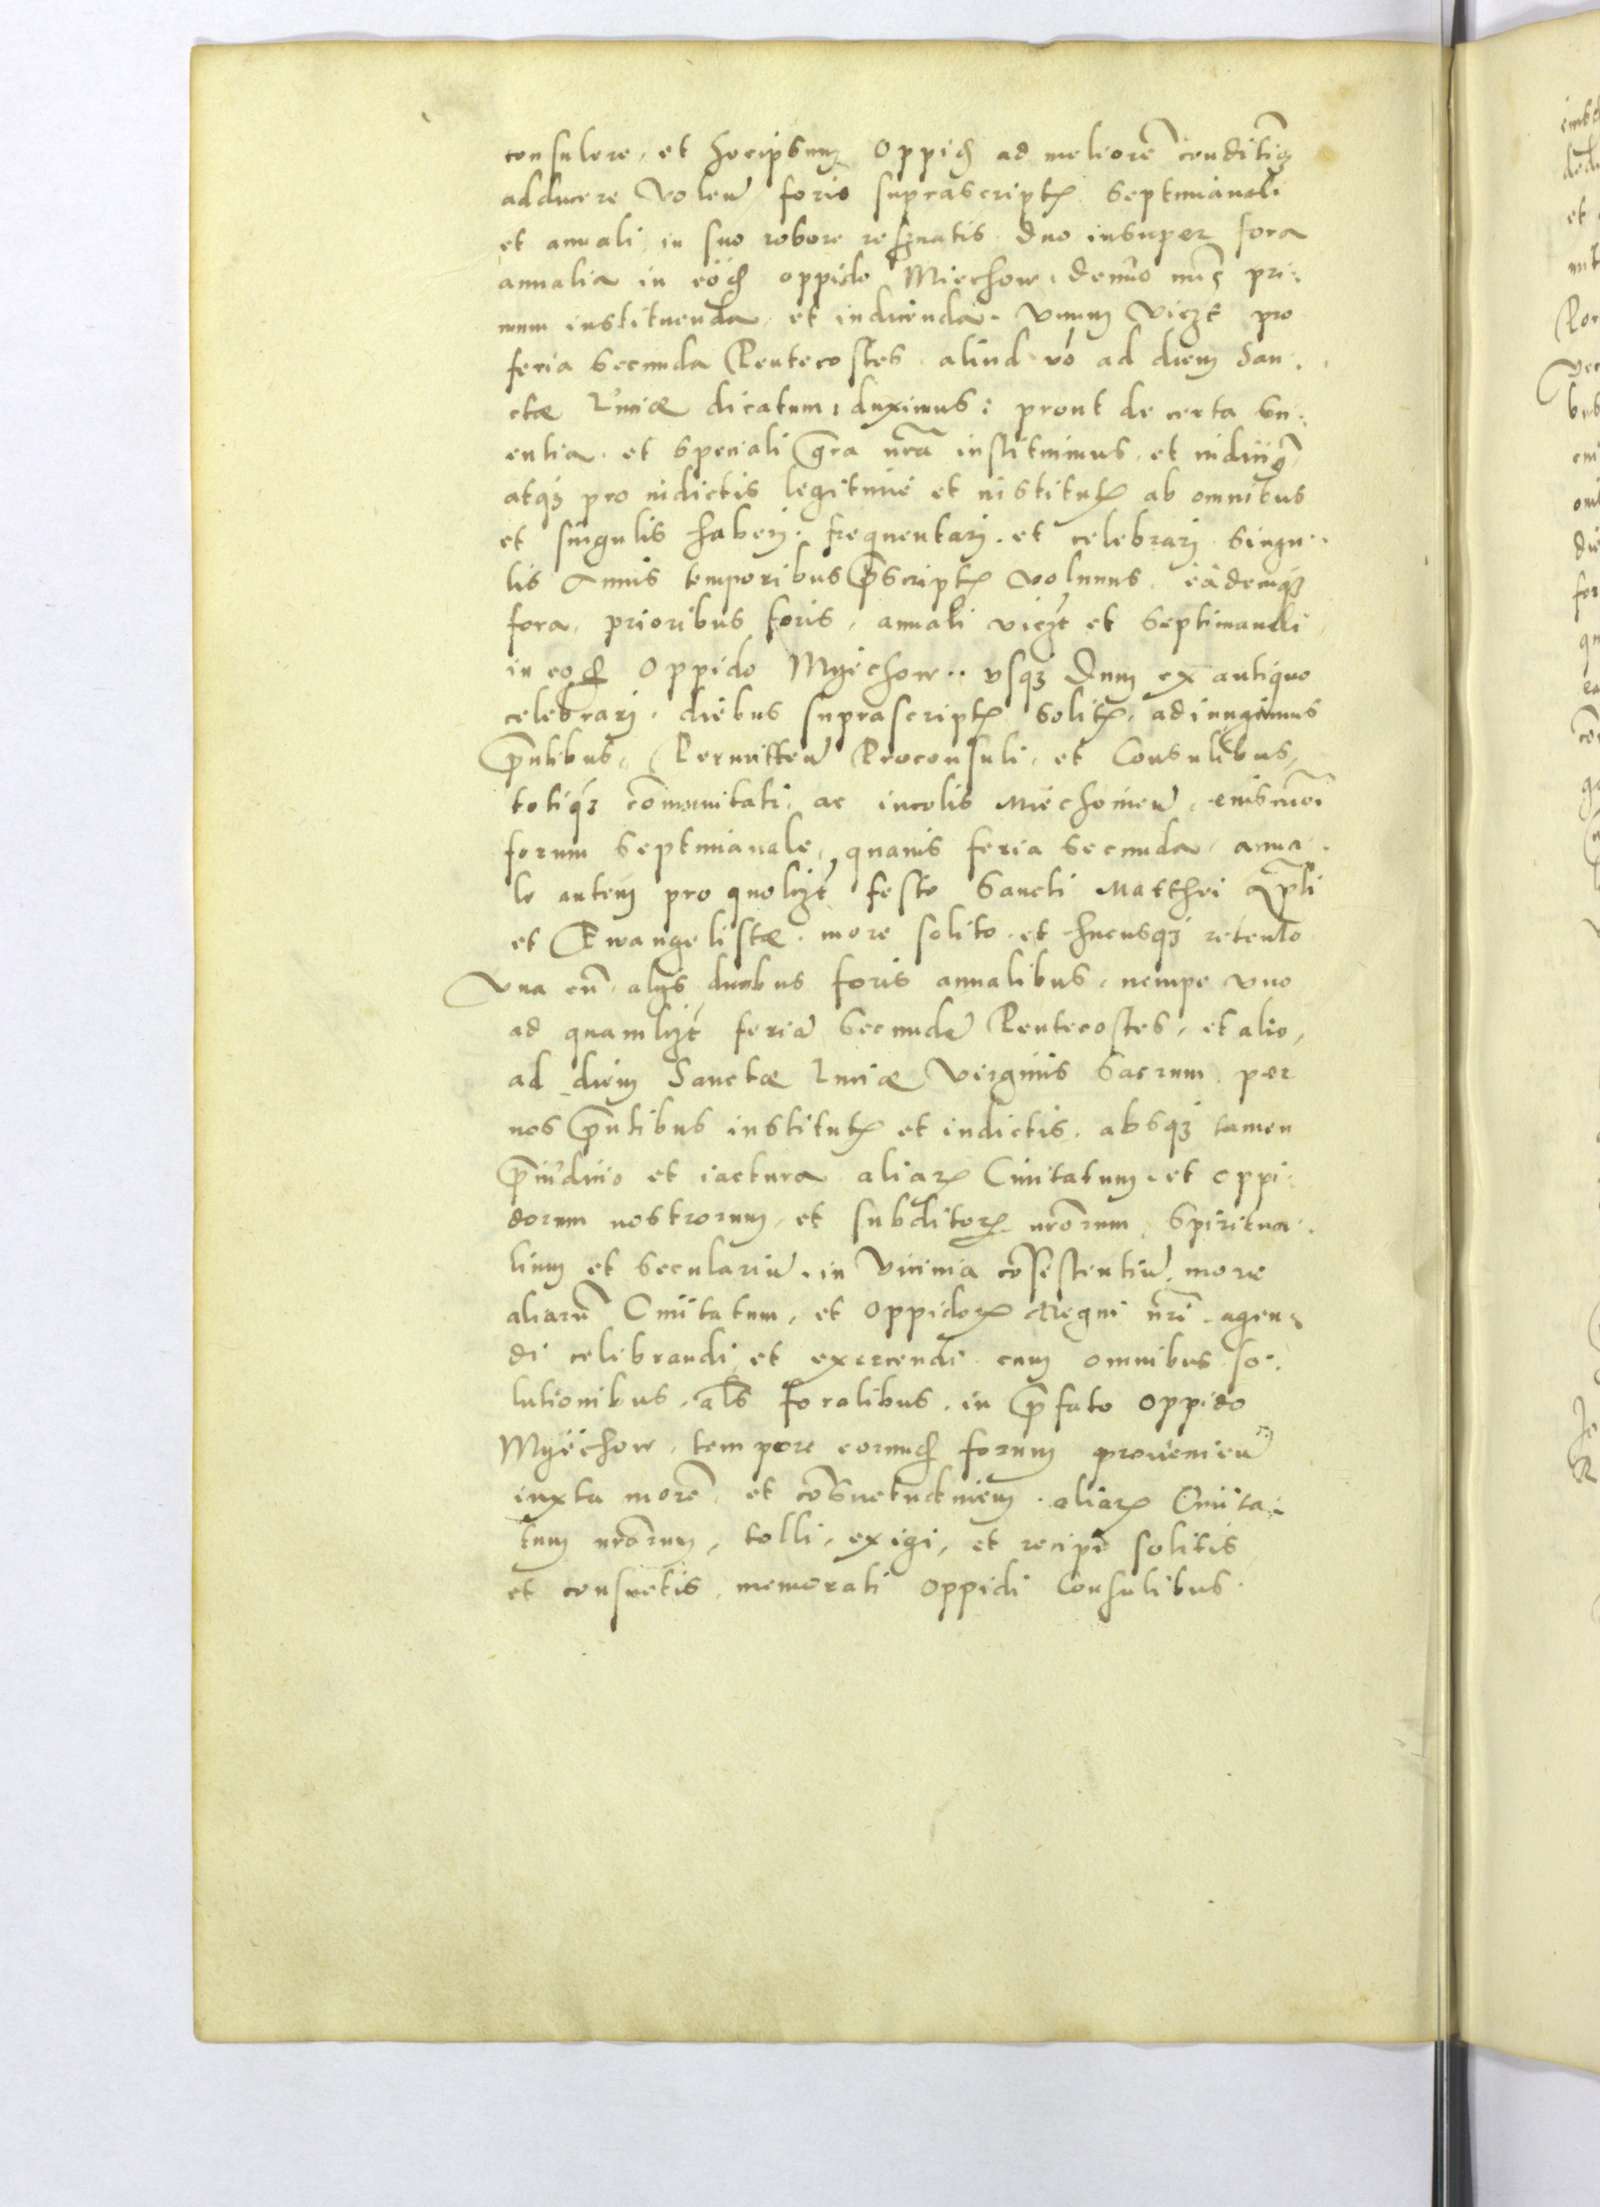 consulere, et hocipsum Oppid ad meliorē conditiōz
adducere volen̄ foris suprascriptꝭ septimanali
et annali in suo robore reseruatis. duo insuper fora
annalia in eod oppido Miechow, denuo nūc pri:
mum instituenda et indicenda. Vnum viczt pro
feria secunda Pentecostes. aliud vó ad diem San:
ctæ Luciæ dicatum, duximus: prout de certa sci:
entia. et speciali gra nrā instituimus, et indicimꝰ
atqꝫ pro indictis legitime et institutꝭ ab omnibus
et singulis haberj. frequentarj. et celebrarj. singu:
lis Annis temporibus p̄scriptꝭ volumus. eademqꝫ
fora, prioribus foris, annali viczt et septimanali
in eod Oppido Myechow. vsqꝫ dum ex antiquo
celebrarj. diebus suprascriptꝭ solitꝭ, adiungimus
p̄ntibus. Permitten̄ Proconsuli, et Consulibus,
totiqꝫ com̄unitati, ac incolis Miechouien̄, eiusmōi
forum septimanale, quauis feria secunda, anna:
le autem pro quolizt festo Sancti Matthei Apl̄i
et Ewangelistæ. more solito et hucusqꝫ retento
Vna cū alijs duobus foris annalibus, nempe vno
ad quamlizt feriā secundā Pentecostes, et alio,
ad diem Sanctæ Luciæ Virginis sacrum per
nos p̄ntibus institutꝭ et indictis. absqꝫ tamen
p̄iudicio et iactura aliarꝝ Ciuitatum, et oppi:
dorum nostrorum, et subditorꝝ nrōrum, spiritua:
lium et seculariū, in vicinia cōsistentiū, more
aliarū Ciuitatum, et oppidorꝝ Regni nrī. agen:
di celebrandi et exercendi cum omnibus so:
lutionibus, als foralibus, in p̄fato oppido
Myechow, tempore eorund forum prouenien̄
iuxta morē et cōsuetudinem aliarꝝ Ciuita:
tum nrārum, tolli, exigi, et recipi solitis
et consuetis, memorati oppidi Consulibus.